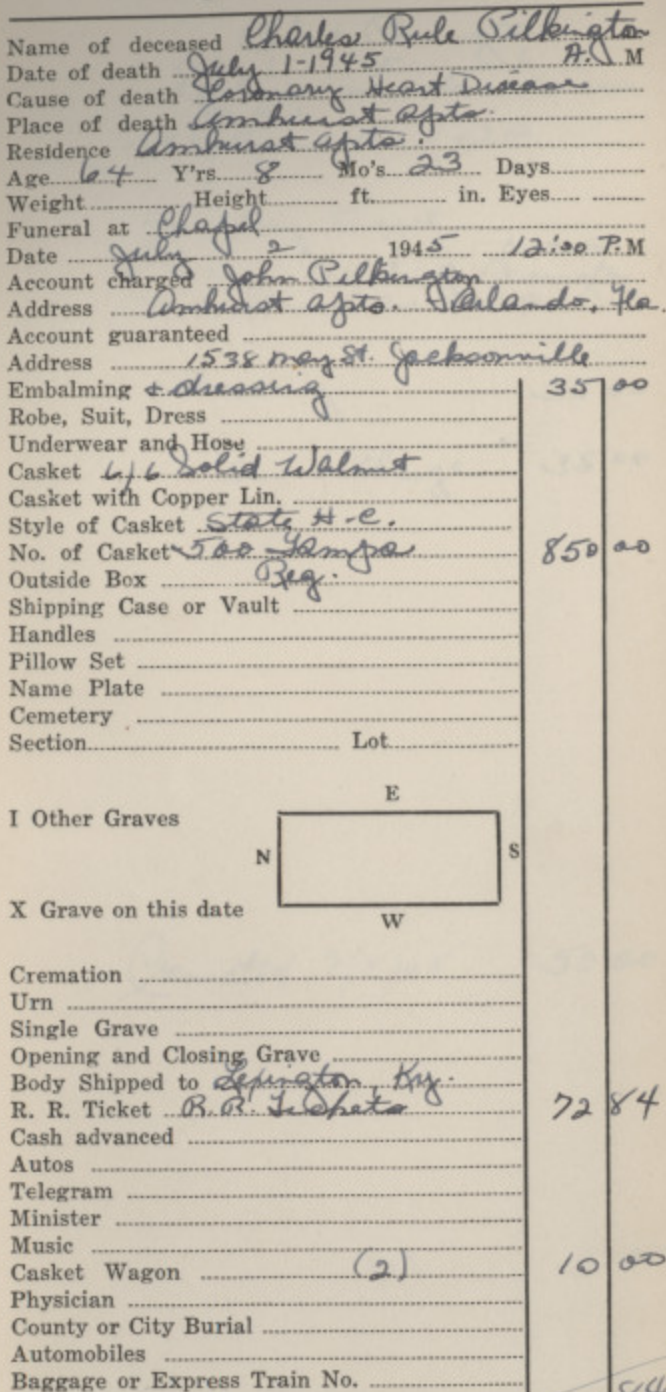 Name of deceased Charles Rule Pilkington
Date of death July 1-1945 A. M
Cause of death Coronary Heart Disease
Place of death Amhurst Apts.
Residence Amhurst Apts.
Age 64 Y'rs 8 Mo's 23 Days
Weight Height ft. in. Eyes
Funeral at Chapel
Date July 2 1945 12:00 P.M
Account charged John Pilkington
Address Amhurst Apts. Orlando, Fla.
Account guaranteed
Address 1538 May St. Jacksonville
Embalming & dressing 35 00
Robe, Suit, Dress
Underwear and Hose
Casket 6/6 Solid Walnut
Casket with Copper Lin.
Style of Casket State H-C.
No. of Casket 500 Tampa 850 00
Outside Box Reg.
Shipping Case or Vault
Handles
Pillow Set
Name Plate
Cemetery
Section Lot
E
I Other Graves
N S
X Grave on this date
W
Cremation
Urn
Single Grave
Opening and Closing Grave
Body Shipped to Lexington, Ky.
R. R. Ticket R.R. Tickets 72 84
Cash advanced
Autos
Telegram
Minister
Music
Casket Wagon (2) 10 00
Physician
County or City Burial
Automobiles
Baggage or Express Train No.